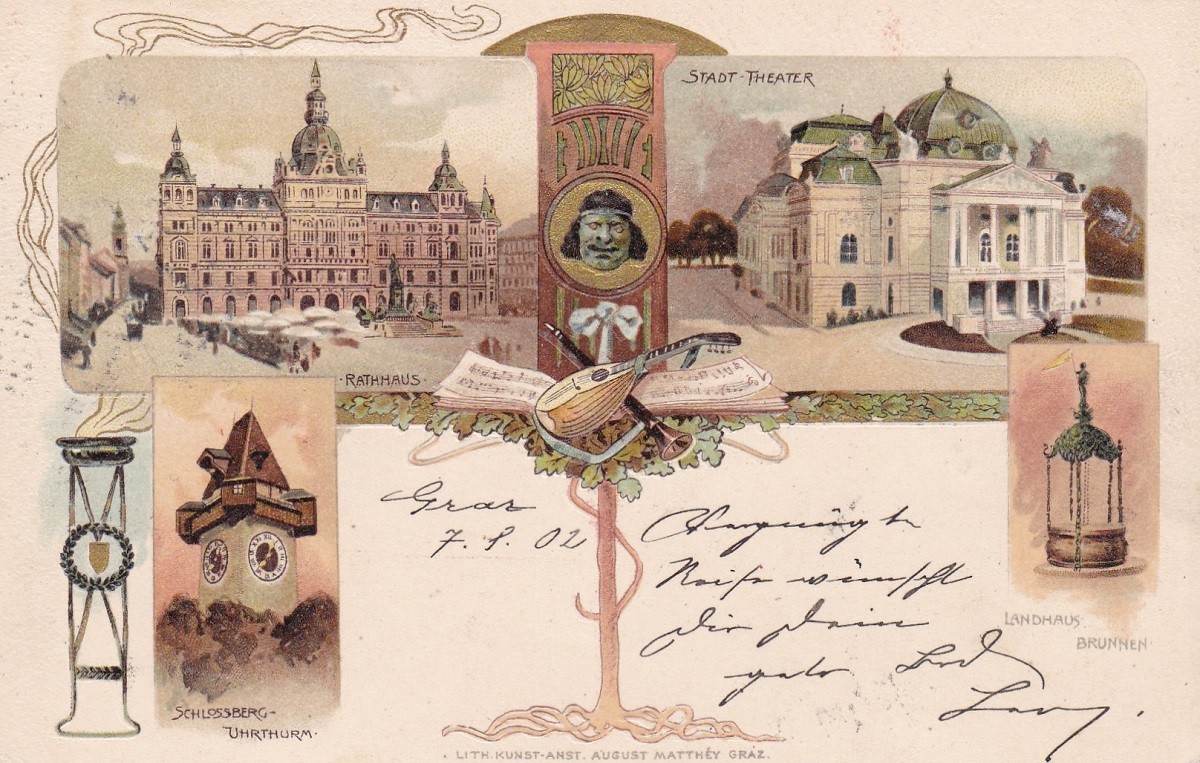 STADT-THEATER
·RATHHAUS·
Graz
7. 8. 02
Vergnügte
Reise wünscht
Dir Dein
LANDHAUS
BRUNNEN·
SCHLOSSBERG-
UHRTHURM·
· LITH. KUNST-ANST. AUGUST MATTHÉY GRAZ.